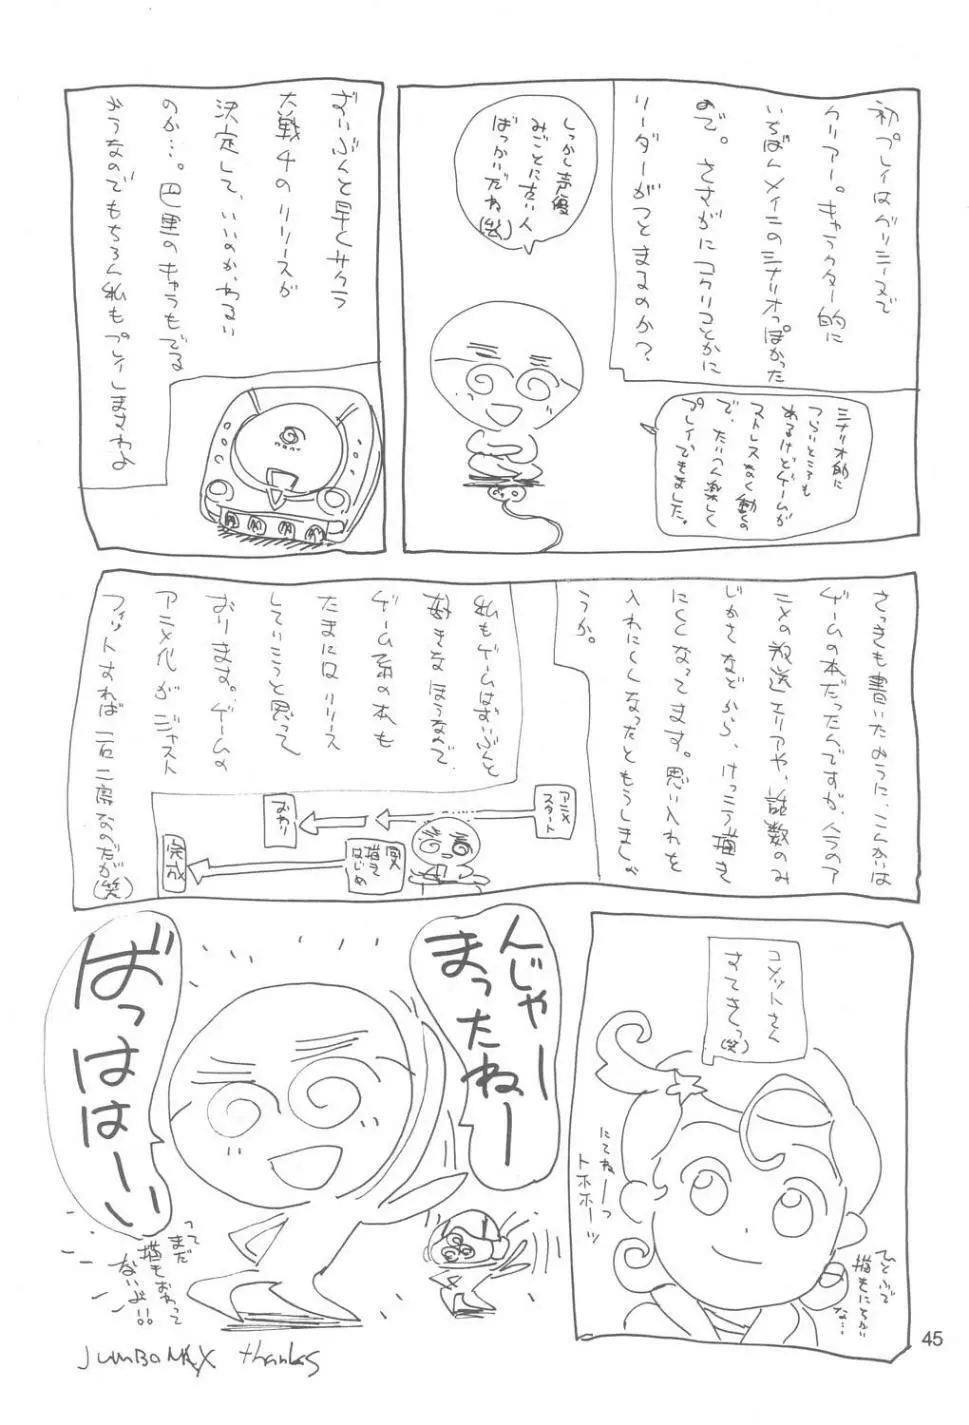 初プレイはグリシーヌで
クリアー。キャラクター的に
いちばんメインのシナリオっぽかった
ので。さすがにコクリコとかに
リーダーがつとまるのか？
しっかし声優
みごとに古い人
ばっかいだね(笑)
シナリオ的に
つらいところも
あるけどゲームが
ストレスなく動くの
で、たいへん楽しく
プレイできました。
ずいぶんと早くサクラ
大戦4のリリースが
決定して、いいのか、わるい
のか…。巴里のキャラもでる
ようなのでもちろん私もプレイしますわよ
さっきも書いたように、こんかいは
ゲームの本だったんですが、今のア
ニメの放送エリアや、話数のみ
じかさなどから、けっこう描き
にくくなってます。思い入れを
入れにくくなったともうしましょ
うか。
私もゲームはずいぶんと
好きなほうなんで、
ゲーム系の本も
たまにはリリース
していこうと思って
おります。ゲームの
アニメ化がジャスト
フィットすれば一石二鳥なのだが(笑)
アニメ
スタート
おわり
描き
はじめ
完成
コメットさん
すてきっ(笑)
にてねーっ
トホホーッ
ひとふで
描きにちかい
な…
んじゃー
まったねー
ばっははーい
って
まだ
描きおわって
ないよ!!
JUMBOMAX thanks
45